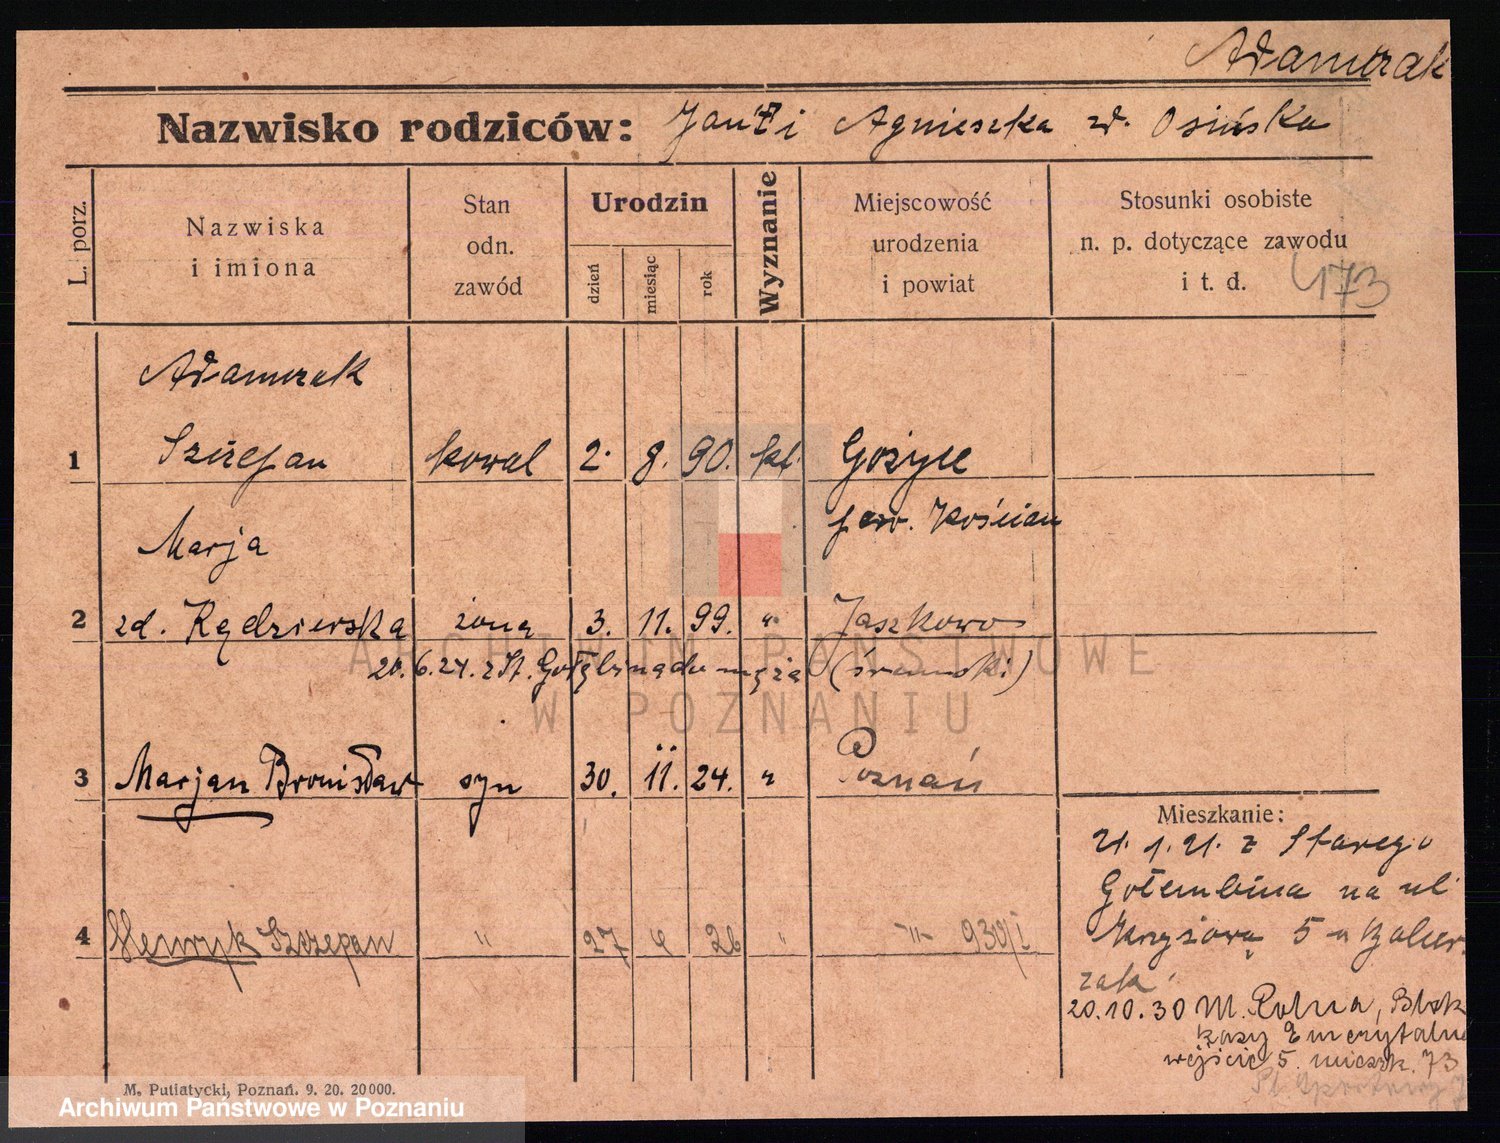 Adamczak
Nazwisko rodziców: Jan i Agnieszka zd. Osińska
L. porz.
Nazwiska
i imiona
Stan
odn.
zawód
Urodzin
dzień
miesiąc
rok
Wyznanie
Miejscowość
urodzenia
i powiat
Stosunki osobiste
n. p. dotyczące zawodu
i t. d.
173
Adamczak
1 Szczepan kowal 2. 8. 90. kt.
pow. Kościan
Marja
2 zd. Kędzierska żona 3. 11. 99. " Jaszkowo
20.6.24. z St. Gołębina do męża (śremski)
3 Marjan Bronisław syn 30. 11. 24. " Poznań
4 Henryk Szczepan " 27 26 " -"- 930/I
Mieszkanie:
21. 1. 21. z Starego
Gołembina na ul
Krzyżową 5 u
20.10.30 M. Rolna, Blok
kasy Emerytalne
wejście 5. mieszk. 73
M. Putiatycki, Poznań. 9. 20. 20000.
ARCHIWUM PAŃSTWOWE
W POZNANIU
Archiwum Państwowe w Poznaniu